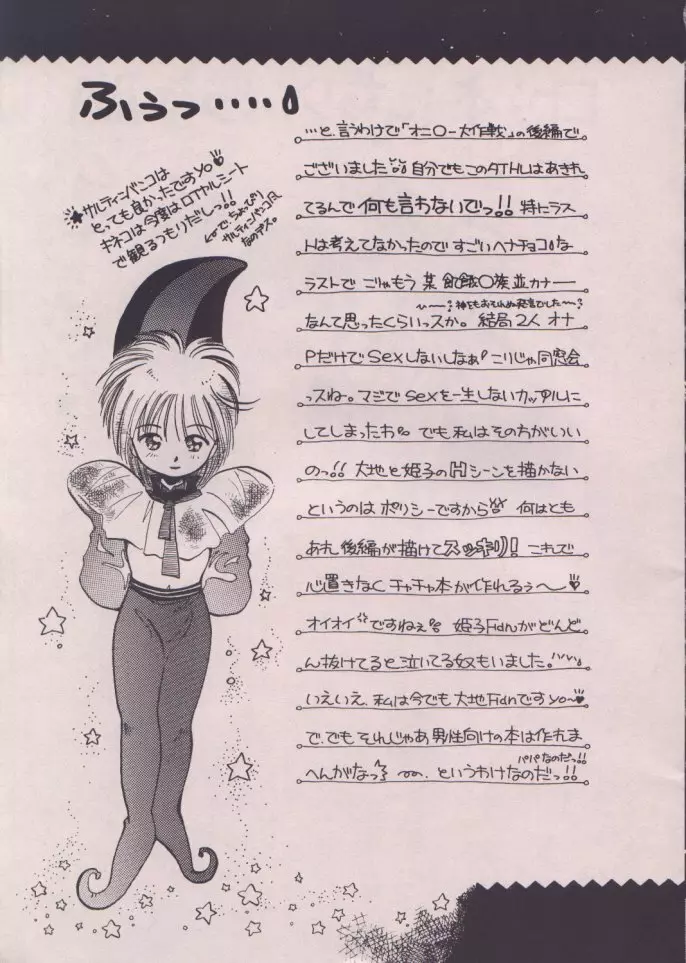 ふぅっ・・・・
サルティンバンコは
とっても良かったですyo♥
キネコは今度はロイヤルシート
で観るつもりだしっ!!
で、ちょっぴり
サルティンバンコ風
なのデス。
…と、言うわけで「オニ〇ー大作戦」の後編で
ございました 自分でもこのタイトルはあきれ
てるんで何も言わないでっ!! 特にラス
トは考えてなかったので すごいヘナチョコな
ラストで ごめんもう 某 飢餓〇族並カナー
〜〜神をもおそれぬ発言でした〜〜
なんて思ったくらいっスか。 結局2人 オナ
Pだけで Sexしないしなぁ こりじゃ同窓会
っスね。 マジで sexを一生しないカップルに
してしまったわ でも私はその方がいい
のっ!! 大地と姫子のHシーンを描かない
というのは ポリシーですから 何はとも
あれ 後編が描けてスッキリ! これで
心置きなくチャチャ本が作れるぅ〜♥
オイオイですねぇ 姫子Fanがどんど
ん抜けてると泣いてる奴もいました。
いえいえ、私は今でも 大地Fanですyo〜♥
で、でも それじゃあ 男性向けの本は作れま
へんがなっ 、というわけなのだっ!!
パパなのだっ!!